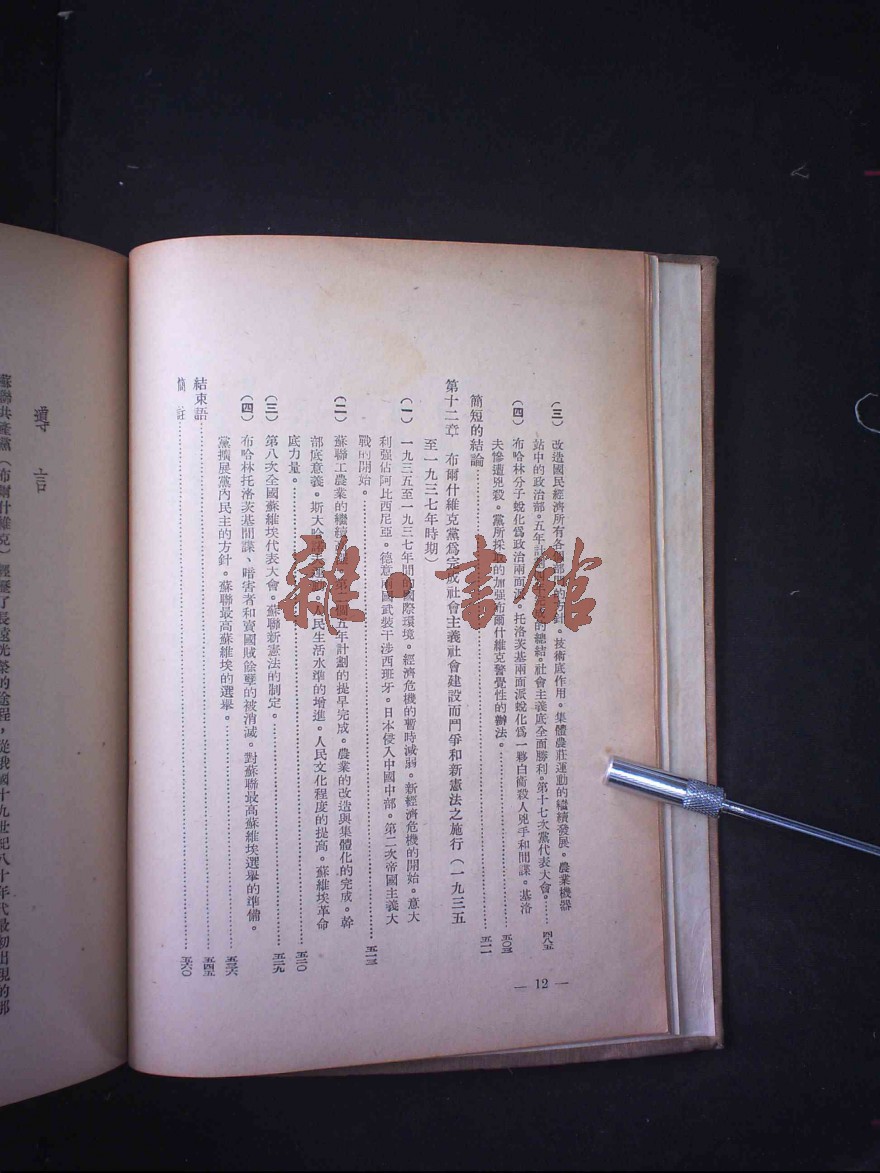 （三）改造國民經濟所有各部門的方針。技術底作用。集體農莊運動的繼續發展。農業機器
站中的政治部。五年計劃四年完成的總結。社會主義底全面勝利。第十七次黨代表大會。……四八五
（四）布哈林分子蛻化爲政治兩面派。托洛茨基兩面派蛻化爲一夥白衛殺人兇手和間諜。基洛
夫慘遭兇殺。黨所採取的加强布爾什維克警覺性的辦法。……五〇三
簡短的結論……五一一
第十二章 布爾什維克黨爲完成社會主義社會建設而鬥爭和新憲法之施行（一九三五
至一九三七年時期）
（一）一九三五至一九三七年間的國際環境。經濟危機的暫時減弱。新經濟危機的開始。意大
利强佔阿比西尼亞。德意兩國武裝干涉西班牙。日本侵入中國中部。第二次帝國主義大
戰的開始。……五一三
（二）蘇聯工農業的繼續 第二個五年計劃的提早完成。農業的改造與集體化的完成。幹
部底意義。斯大哈諾夫運動。人民生活水準的增進。人民文化程度的提高。蘇維埃革命
底力量。……五二〇
（三）第八次全國蘇維埃代表大會。蘇聯新憲法的制定。……五二九
（四）布哈林托洛茨基間諜、暗害者和賣國賊餘孽的被消滅。對蘇聯最高蘇維埃選舉的準備。
黨擴展黨內民主的方針。蘇聯最高蘇維埃的選舉。……五三六
結束語……五四五
簡註……五六〇
— 12 —
導言
蘇聯共產黨（布爾什維克）經歷了長遠光榮的途程，從我國十九世紀八十年代最初出現的那
雜·書館